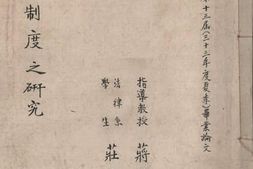 十三屆(三十三年度夏季)畢業論文
指導教授 蔣
法律系
學生 莊
制度之研究